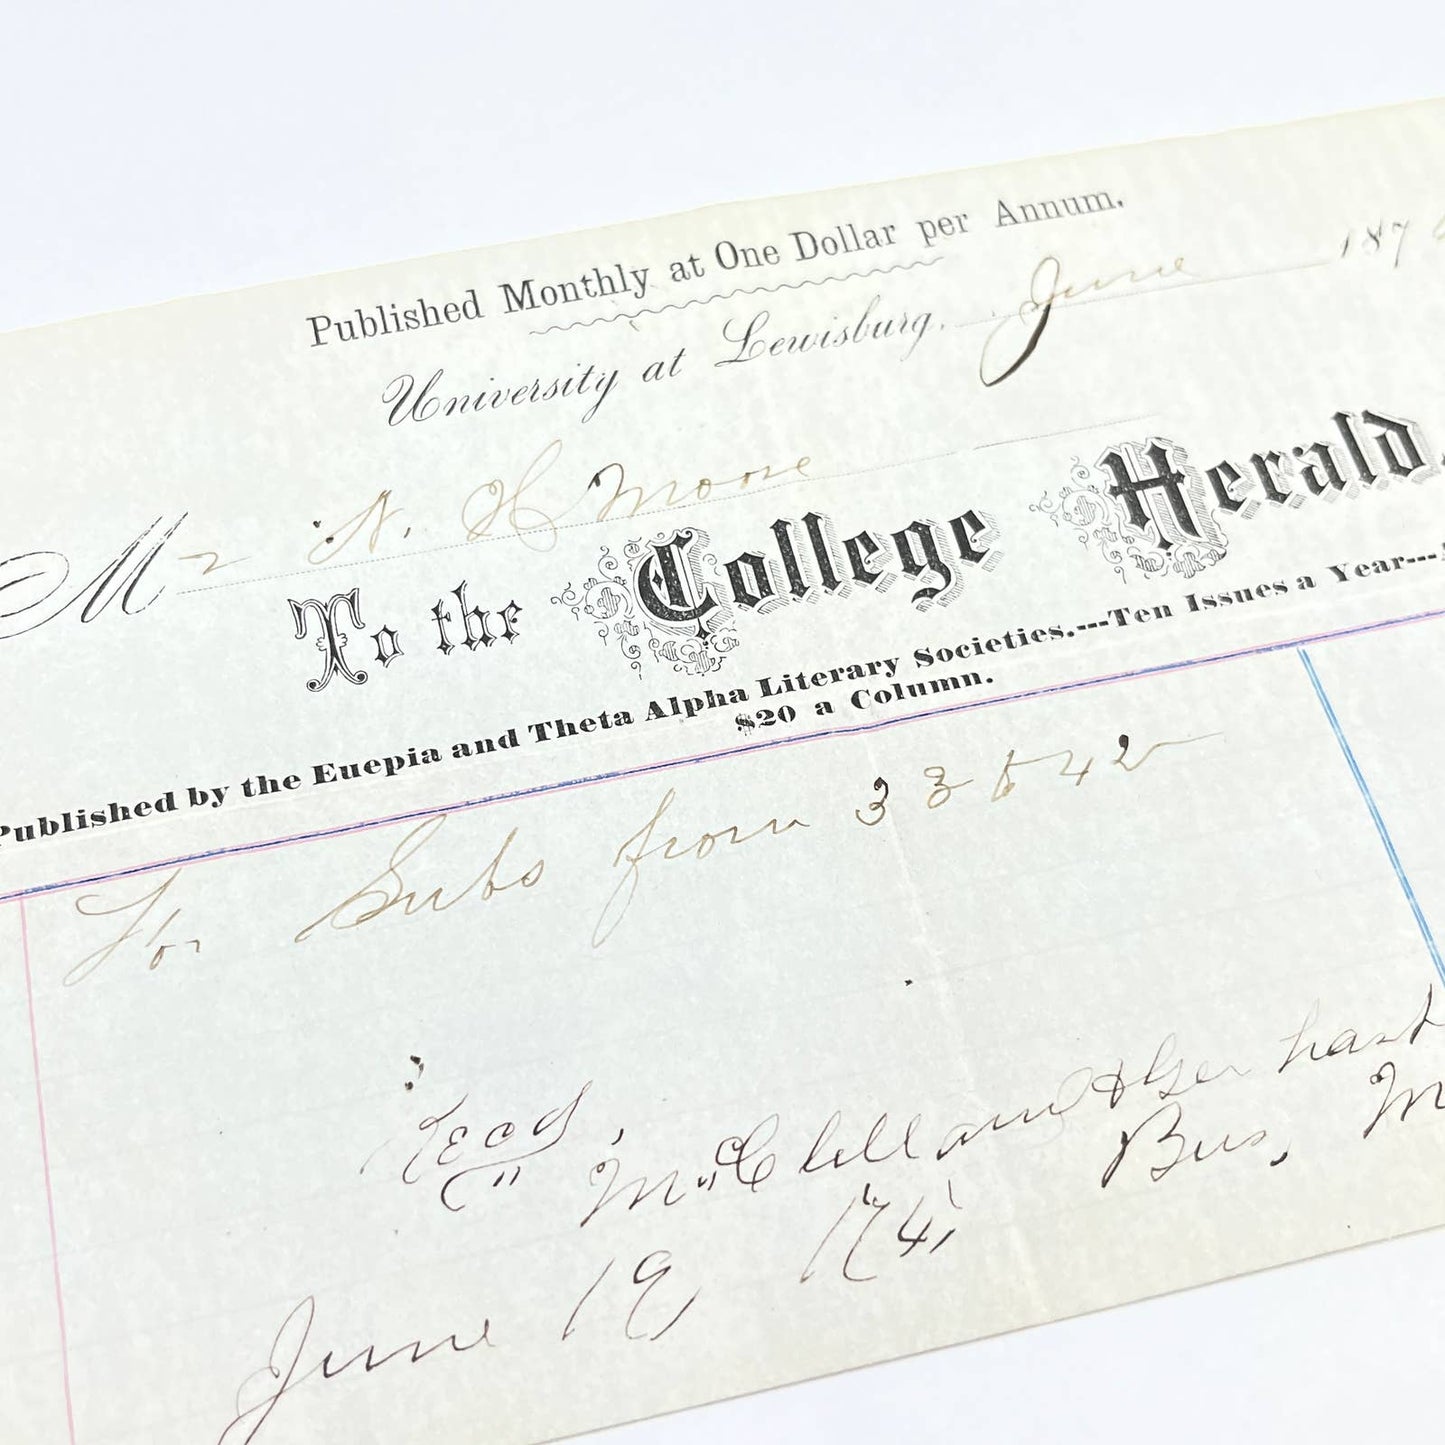 Published Monthly at One Dollar per Annum.
University at Lewisburg, June 187
Mr N. H Moore
To the College Herald,
Published by the Euepia and Theta Alpha Literary Societies.---Ten Issues a Year---
$20 a Column.
For Subs from 33 to 42
Recd,
McClelland &
Bus. M
June 19, '74,